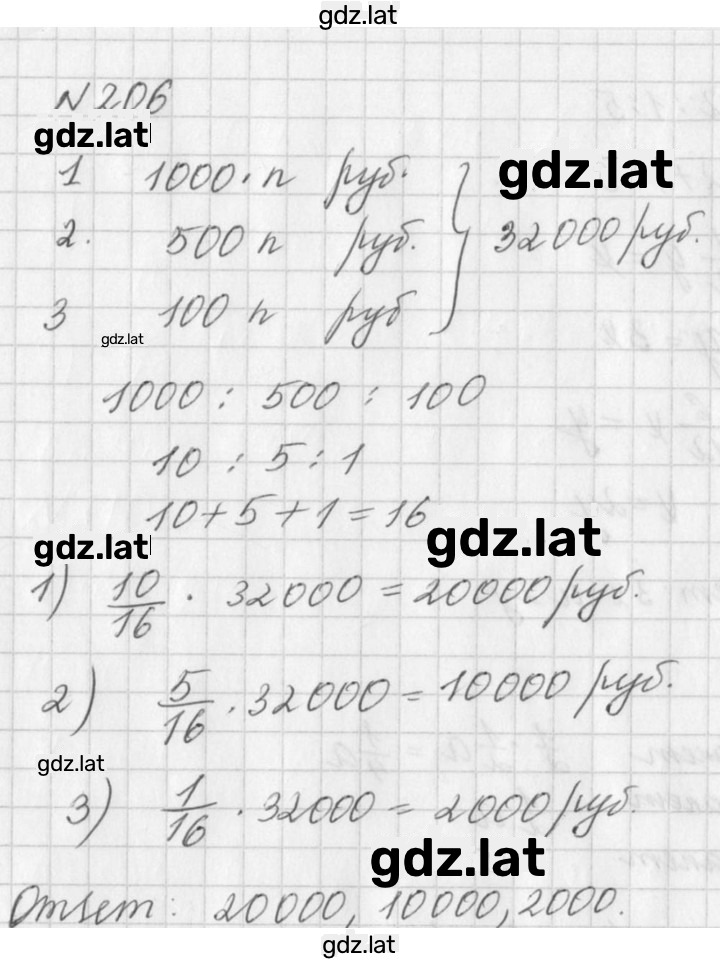 gdz.lat
№ 206
gdz.lat
1 1000 · n руб. gdz.lat
2. 500 n руб. } 32000 руб.
3 100 n руб
gdz.lat
1000 : 500 : 100
10 : 5 : 1
10 + 5 + 1 = 16
gdz.lat
gdz.lat
1) 10/16 · 32000 = 20000 руб.
2) 5/16 · 32000 = 10000 руб.
gdz.lat
3) 1/16 · 32000 = 2000 руб.
gdz.lat
Ответ: 20000, 10000, 2000.
gdz.lat